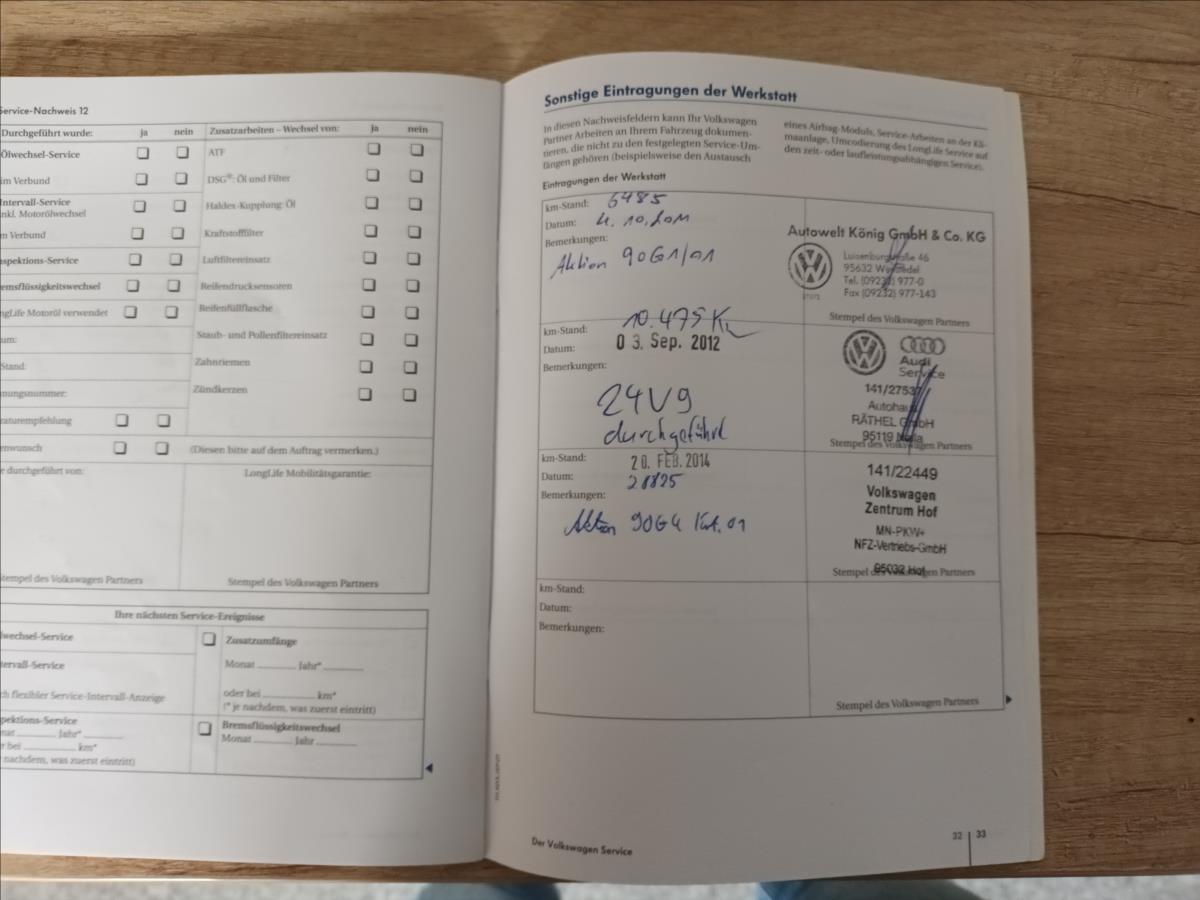 Service-Nachweis 12
Durchgeführt wurde: ja nein
Ölwechsel-Service
im Verbund
Intervall-Service
inkl. Motorölwechsel
m Verbund
spektions-Service
emsflüssigkeitswechsel
ngLife Motoröl verwendet
um:
Stand:
nungsnummer:
araturempfehlung
enwunsch
Zusatzarbeiten – Wechsel von: ja nein
ATF
DSG®: Öl und Filter
Haldex-Kupplung: Öl
Kraftstofffilter
Luftfiltereinsatz
Reifendrucksensoren
Reifenfüllflasche
Staub- und Pollenfiltereinsatz
Zahnriemen
Zündkerzen
(Diesen bitte auf dem Auftrag vermerken.)
e durchgeführt von:
LongLife Mobilitätsgarantie:
Stempel des Volkswagen Partners
Stempel des Volkswagen Partners
Ihre nächsten Service-Ereignisse
wechsel-Service
tervall-Service
ch flexibler Service-Intervall-Anzeige
pektions-Service
nat Jahr*
r bei km*
nachdem, was zuerst eintritt)
Zusatzumfänge
Monat Jahr*
oder bei km*
(* je nachdem, was zuerst eintritt)
Bremsflüssigkeitswechsel
Monat Jahr
Sonstige Eintragungen der Werkstatt
In diesen Nachweisfeldern kann Ihr Volkswagen
Partner Arbeiten an Ihrem Fahrzeug dokumen-
tieren, die nicht zu den festgelegten Service-Um-
fängen gehören (beispielsweise den Austausch
eines Airbag-Moduls, Service-Arbeiten an der Kli-
maanlage, Umcodierung des LongLife Service auf
den zeit- oder laufleistungsabhängigen Service).
Eintragungen der Werkstatt
km-Stand: 6485
Datum: 4.10.2011
Bemerkungen:
Aktion 90G1/01
Autowelt König GmbH & Co. KG
Luisenburgstraße 46
95632 Wunsiedel
Tel. (09232) 977-0
Fax (09232) 977-143
Stempel des Volkswagen Partners
km-Stand: 10.475 Km
Datum: 03. Sep. 2012
Bemerkungen:
24V9
durchgeführt
Audi
Service
141/27537
Autohaus
RÄTHEL GmbH
95119 Naila
Stempel des Volkswagen Partners
km-Stand: 20. FEB. 2014
Datum: 21825
Bemerkungen:
Aktion 90G4 Krit. 01
141/22449
Volkswagen
Zentrum Hof
MN-PKW+
NFZ-Vertriebs-GmbH
95032 Hof
Stempel des Volkswagen Partners
km-Stand:
Datum:
Bemerkungen:
Stempel des Volkswagen Partners
Der Volkswagen Service
32 33